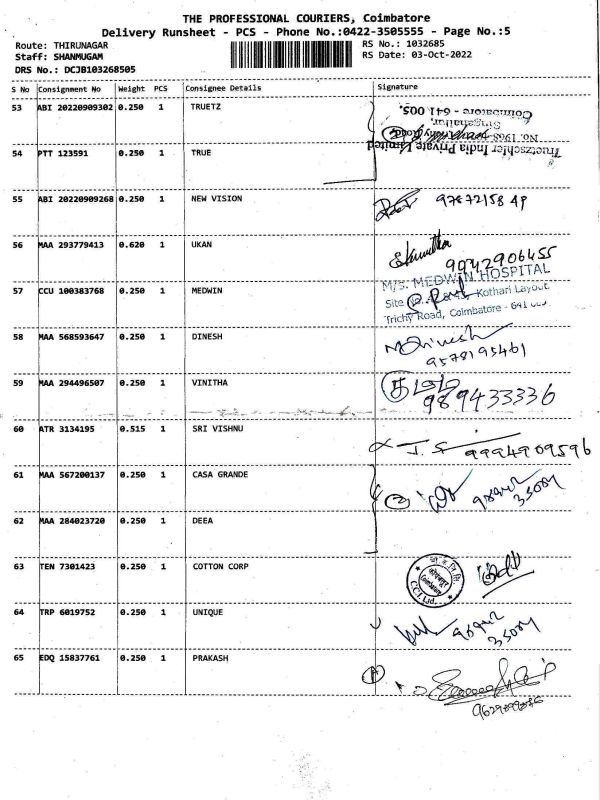 THE PROFESSIONAL COURIERS, Coimbatore
Delivery Runsheet - PCS - Phone No.:0422-3505555 - Page No.:5
Route: THIRUNAGAR RS No.: 1032685
Staff: SHANMUGAM RS Date: 03-Oct-2022
DRS No.: DCJB103268505
S No Consignment No Weight PCS Consignee Details Signature
53 ABI 20220909302 0.250 1 TRUETZ
Truetzschler India Private Limited
No. 1968,
Singanallur,
Coimbatore - 641 005.
54 PTT 123591 0.250 1 TRUE
55 ABI 20220909268 0.250 1 NEW VISION
56 MAA 293779413 0.620 1 UKAN
9942906455
57 CCU 100383768 0.250 1 MEDWIN
M/S. MEDWIN HOSPITAL
Site Kothari Layout
Trichy Road, Coimbatore - 641
58 MAA 568593647 0.250 1 DINESH
9578195461
59 MAA 294496507 0.250 1 VINITHA
989433336
60 ATR 3134195 0.515 1 SRI VISHNU
9994909596
61 MAA 567200137 0.250 1 CASA GRANDE
2
62 MAA 284023720 0.250 1 DEEA
63 TEN 7301423 0.250 1 COTTON CORP
CCI Ltd.
64 TRP 6019752 0.250 1 UNIQUE
65 EDQ 15837761 0.250 1 PRAKASH